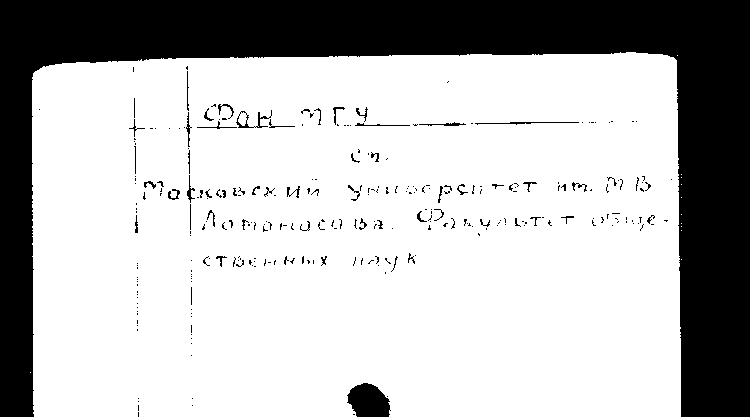 Фон МГУ
см.
Московский университет им. М В
Ломоносова. Факультет обще-
ственных наук